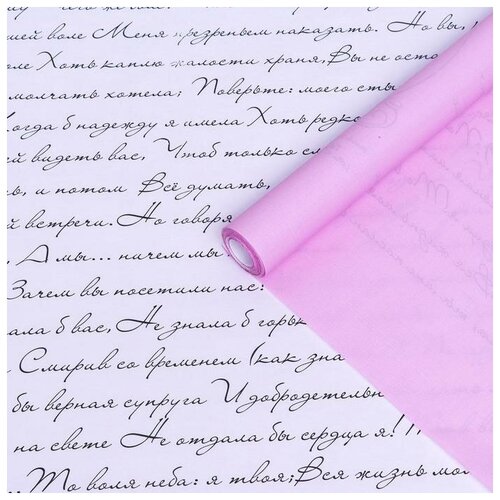 шей воле Меня презреньем наказать. Но вы,
оле Хоть каплю жалости храня, Вы не оста
молчать хотела; Поверьте: моего сты
Когда б надежду я имела Хоть редко
й видеть вас, Чтоб только сл
ь, и потом Всё думать,
й встречи. Но говоря
А мы... ничем мы
Зачем вы посетили нас:
ала б вас, Не знала б горьк
Смирив со временем (как зна
бы верная супруга И добродетельн
на свете Не отдала бы сердца я!
То воля неба: я твоя; Вся жизнь мо